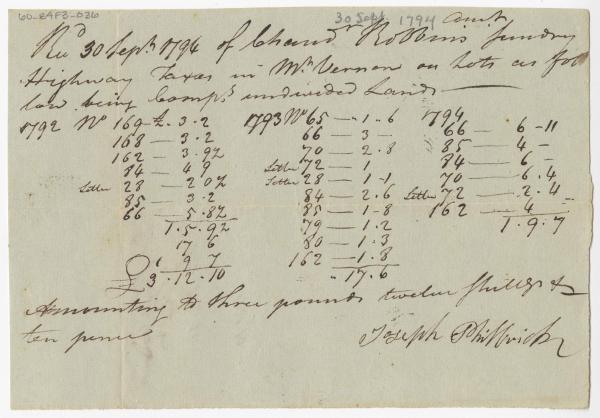 60-24F3-036
30 Sept. 1794
Rec'd 30 Sept. 1794 of Chandr Robbins sundry
Highway Taxes in Mt. Vernon on Lots as fol
low being Comps. undivided Lands
1792 No 169 £ . 3 . 2
168 — 3 . 2
162 — 3 . 9½
84 — 4 9
Settler 28 — 2 0½
85 — 3 . 2
66 — 5 . 8½
1 . 5 . 9½
17 6
1 9 7
£ 3 . 12 . 10
1793 No 65 — 1 . 6
66 — 3 —
70 — 2 . 8
Settler 72 — 1
Settler 28 — 1 . 1
84 — 2 . 6
85 — 1 . 8
79 — 1 . 2
80 — 1 . 3
162 — 1 . 8
" 17 . 6
1794
66 — 6 — 11
85 — 4 —
84 — 6 —
70 — 6 . 4
Settler 72 — 2 . 4
162 — 4 —
1 . 9 . 7
Amounting to three pounds twelve shillgs &
ten pence
Joseph